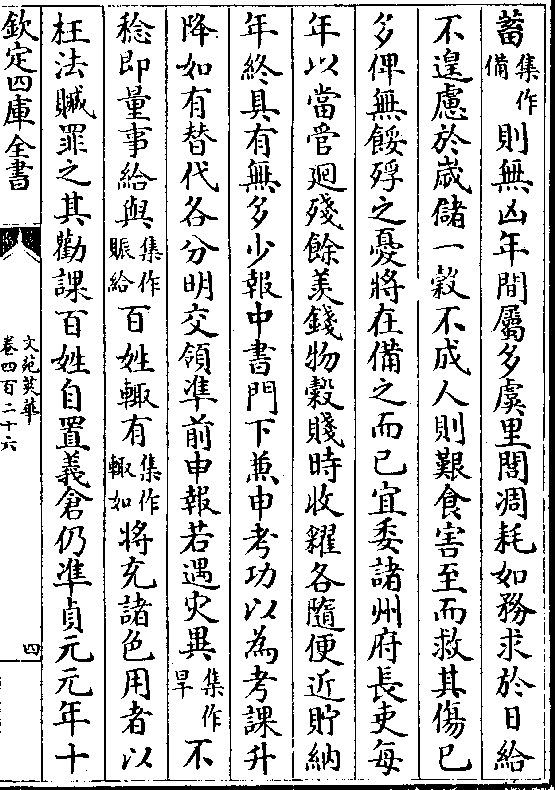 蓄集作備則無凶年間屬多虞里閭凋耗如務求於日給
不遑慮於歳儲一穀不成人則艱食害至而救其傷已
多俾無餒殍之憂將在備之而已宜委諸州府長吏每
年以當管廻殘餘羙錢物穀賤時收糴各隨便近貯納
年終具有無多少報中書門下兼申考功以為考課升
降如有替代各分明交領準前申報若遇灾異集作旱不
稔即量事給與集作賑給百姓輙有集作輙如將充諸色用者以
枉法贓罪之其勸課百姓自置義倉仍準貞元元年十
欽定四庫全書
文苑英華
卷四百二十六
四